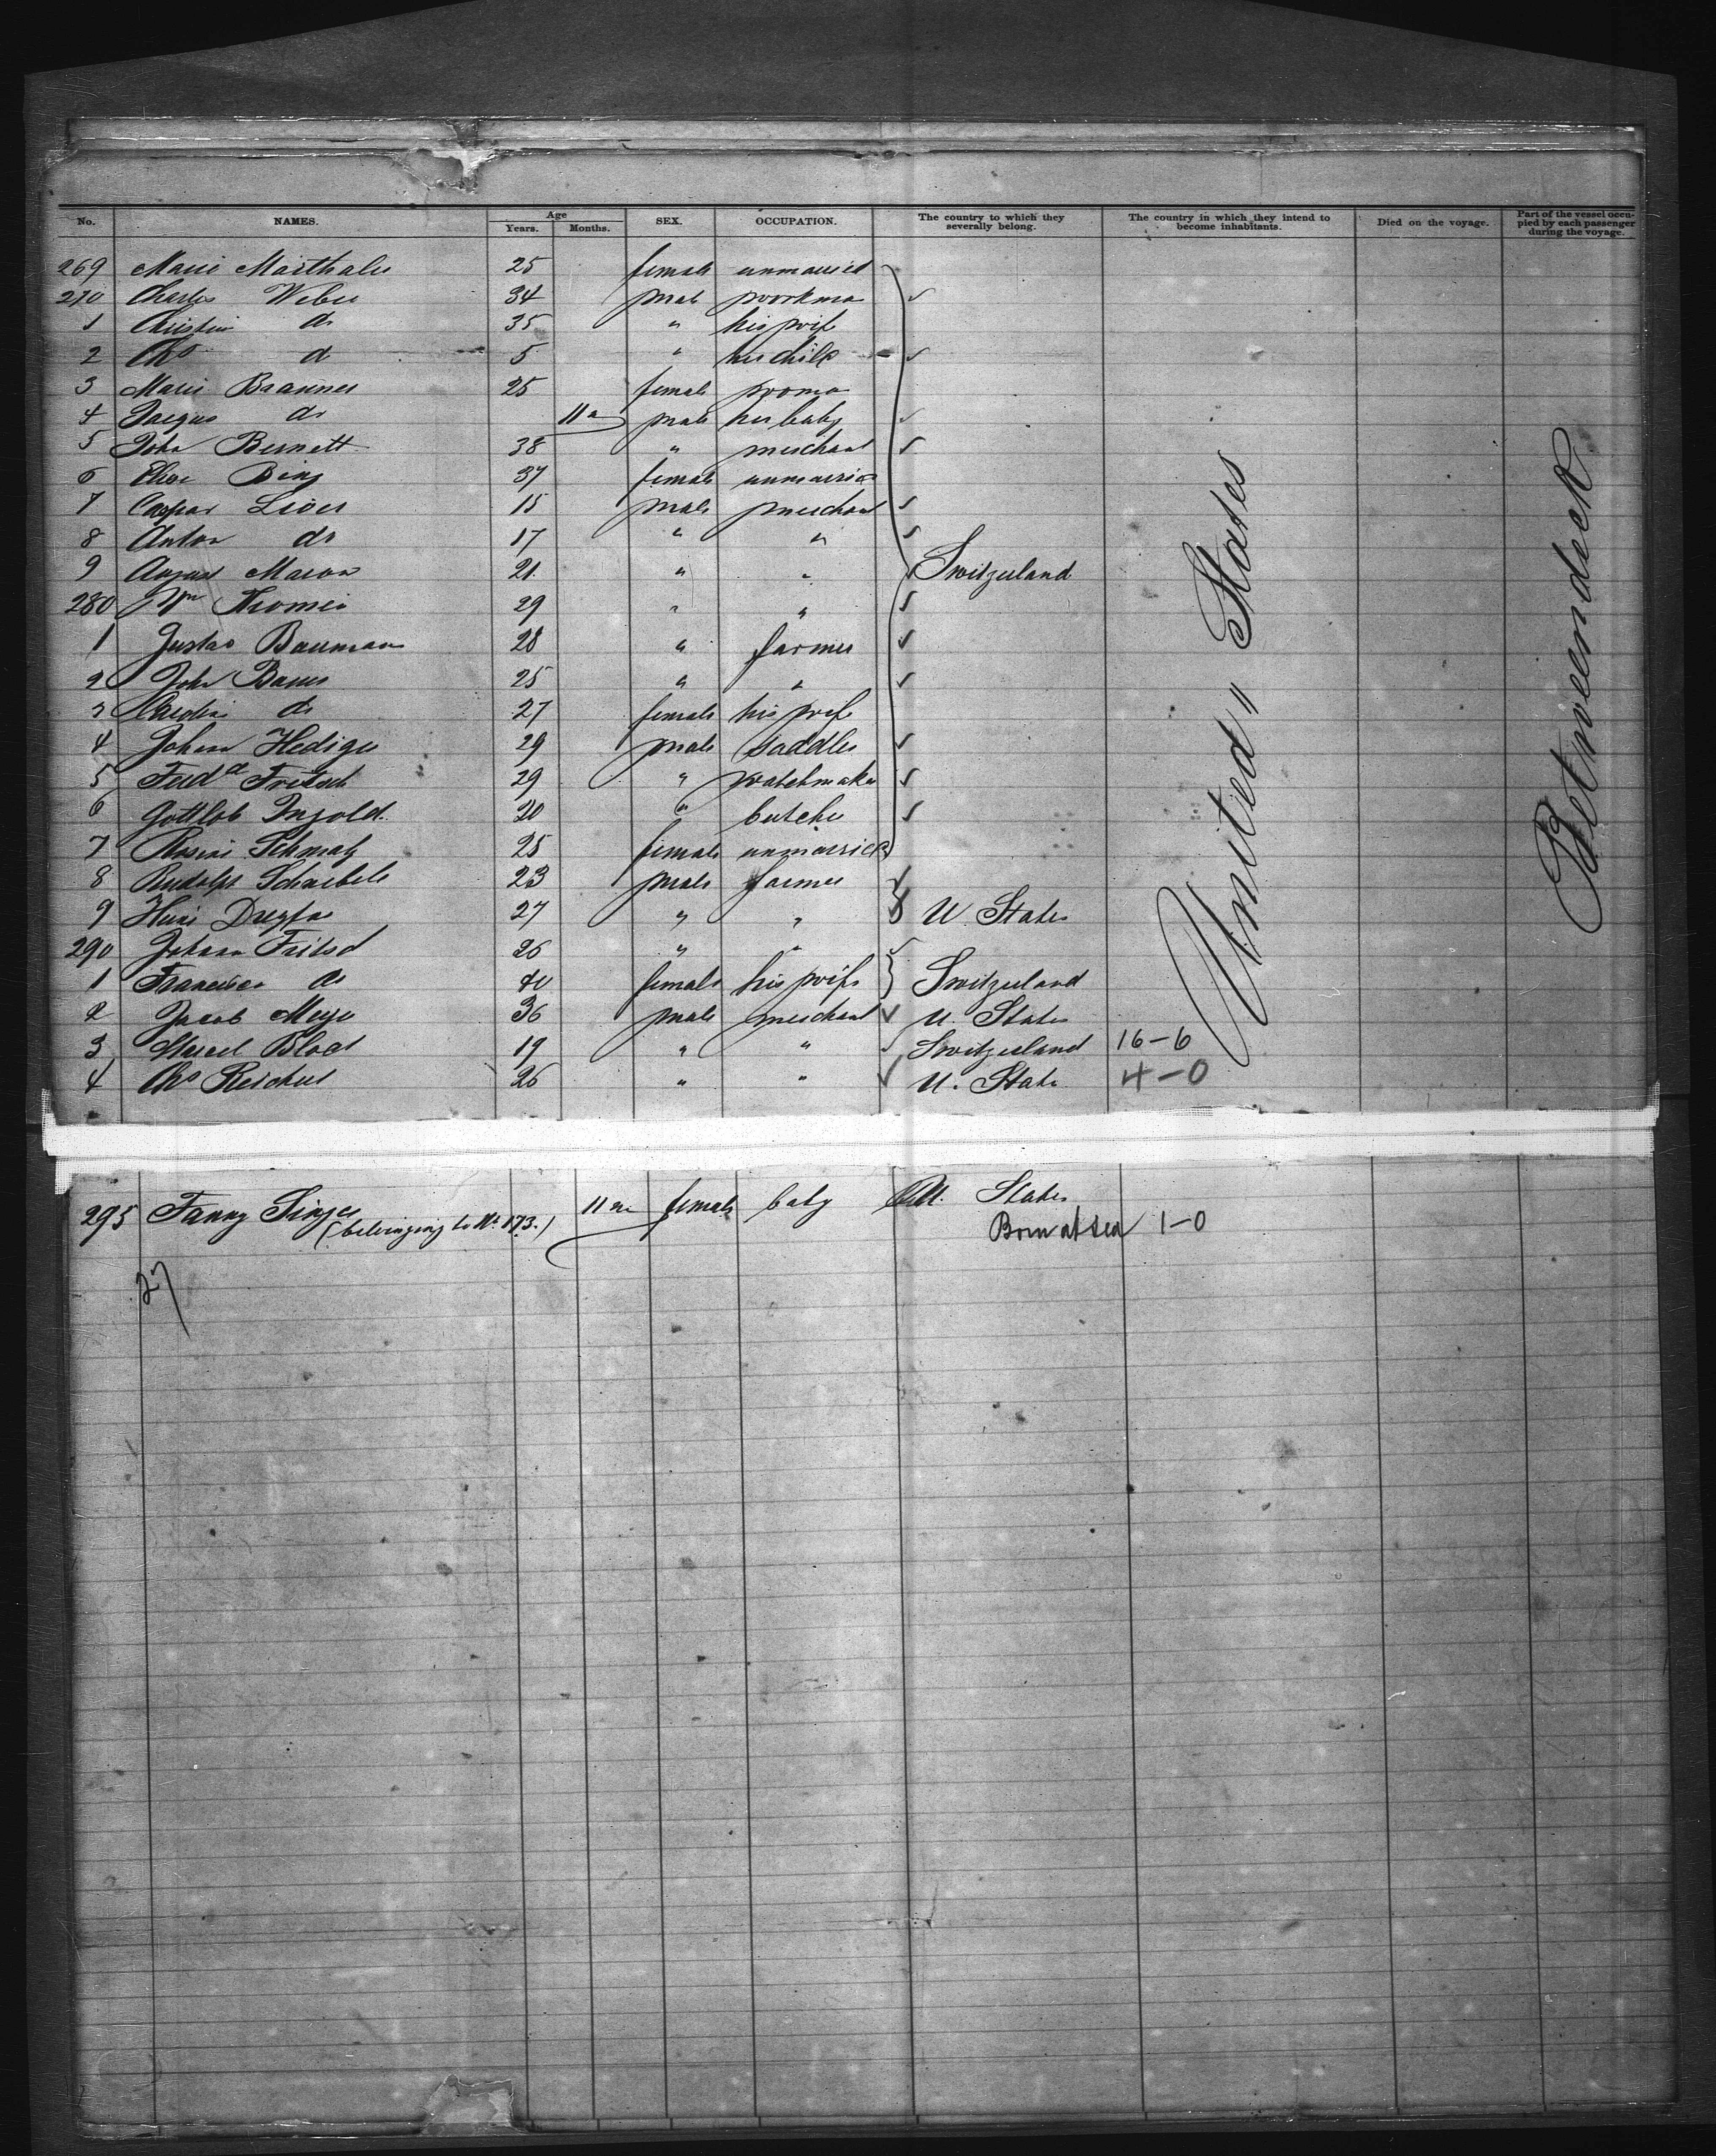 No. NAMES. Age Years. Months. SEX. OCCUPATION. The country to which they severally belong. The country in which they intend to become inhabitants. Died on the voyage. Part of the vessel occupied by each passenger during the voyage.
269 Marie Marthaler 25 female unmarried
270 Charles Weber 34 male workman
1 Christin do 35 " his wife
2 Chs d 5 " her child
3 Marie Braunner 25 female woman
4 Jacques do 11m male her baby
5 John Bernett 38 " merchant
6 Elise Bing 37 female unmarried
7 Caspar Liver 15 male merchant
8 Anton do 17 " "
9 August Macon 21 " " Switzerland
280 Wm Thomei 29 " "
1 Gustav Bauman 28 " farmer
2 John Baur 25 " "
3 Carolin do 27 female his wife
4 Johann Hediger 29 male saddler
5 Ferdd Fritsch 29 " watchmaker
6 Gottlob Ingold. 20 " butcher
7 Rosine Schmalz 25 female unmarried
8 Rudolph Schaebele 23 male farmer
9 Henri Dreyfus 27 " " U States
290 Johann Fritsch 26 " "
1 Francisca do 40 female his wife Switzerland
2 Jacob Meyer 36 male merchant U. States
3 Marcel Bloch 19 " " Switzerland 16-6
4 Chs Reicher 26 " " U. State 4-0
United States
Betweendeck
295 Fanny Singer 11m female baby U. States
(belonging to No 173.) Born at sea 1-0
27